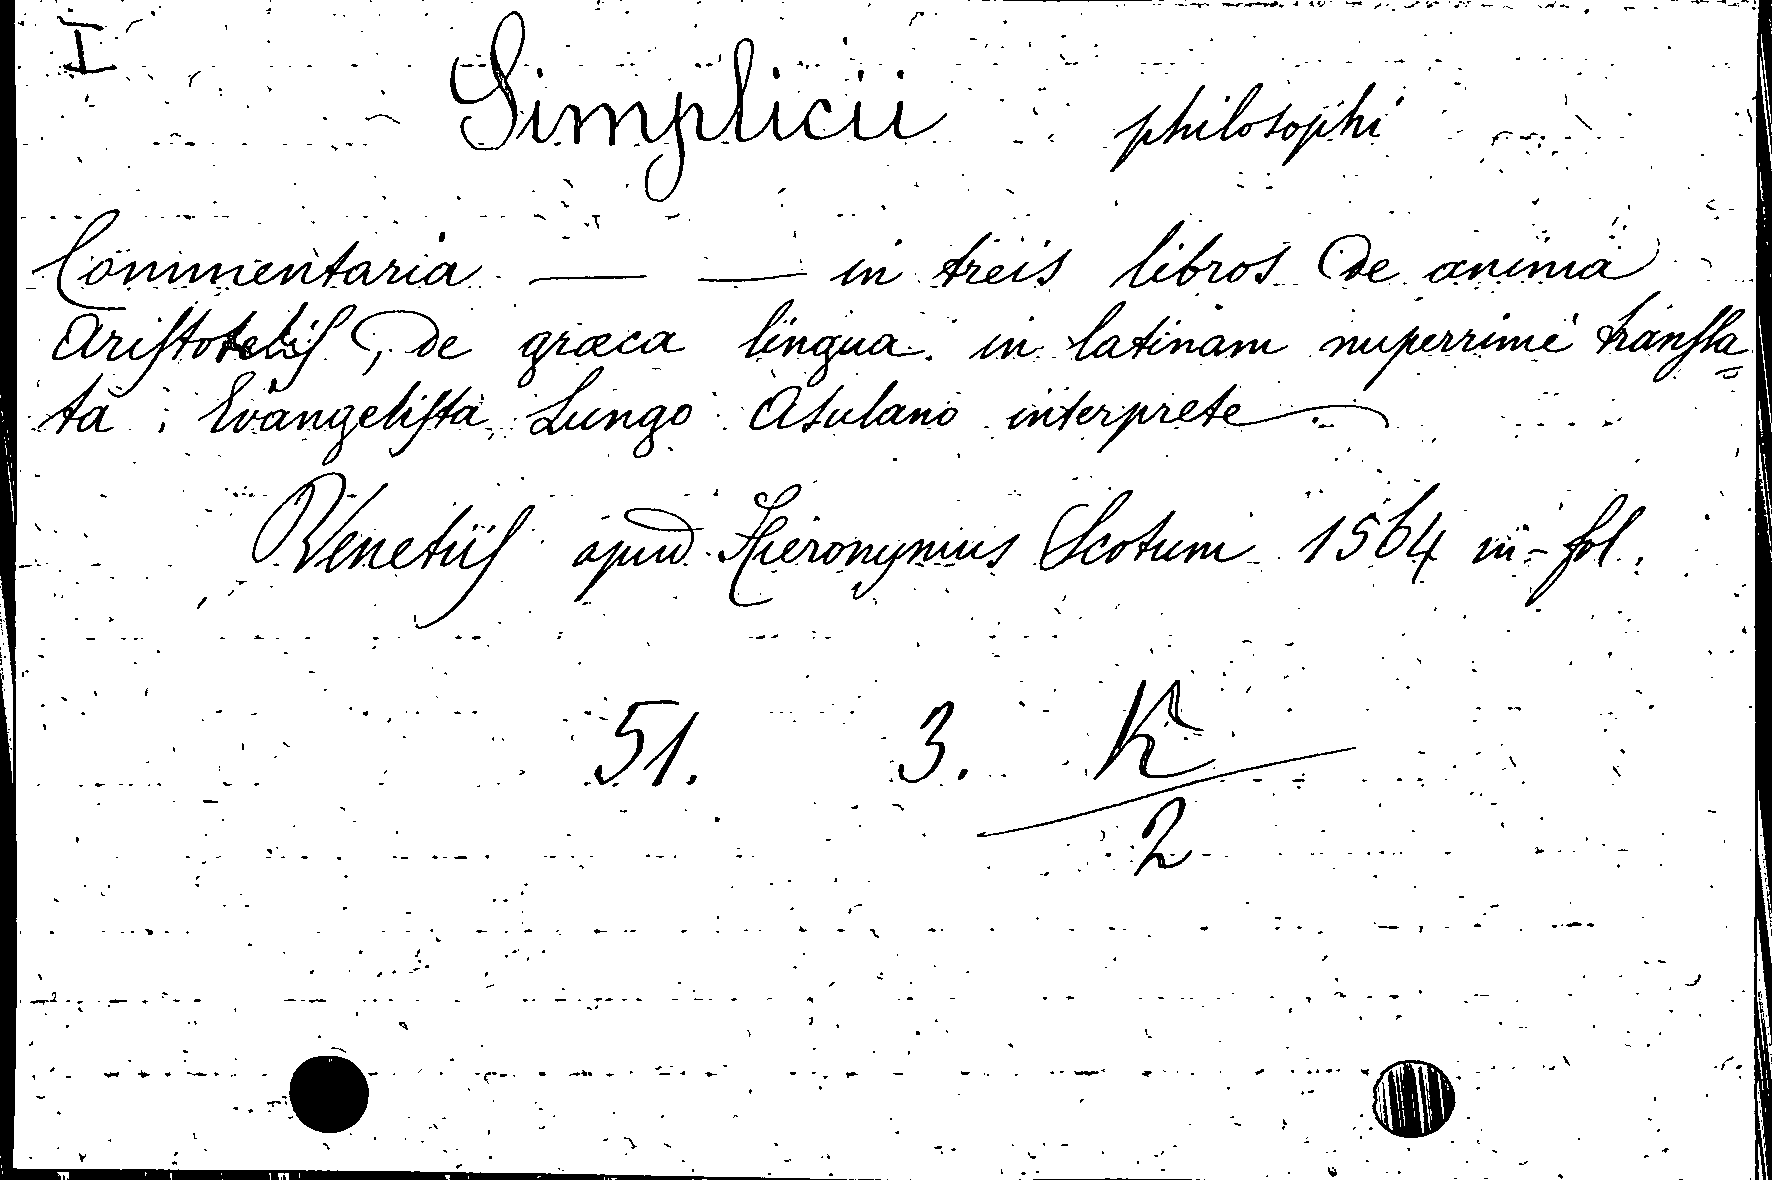 I
Simplicii philosophi
Commentaria — — in treis libros De anima
Aristotelis, De græca lingua in latinam nuperrime transla=
ta, Evangelista Lungo Asulano interprete.
Venetiis apud Hieronymus Scotum 1564 in-fol.
51. 3. K
2